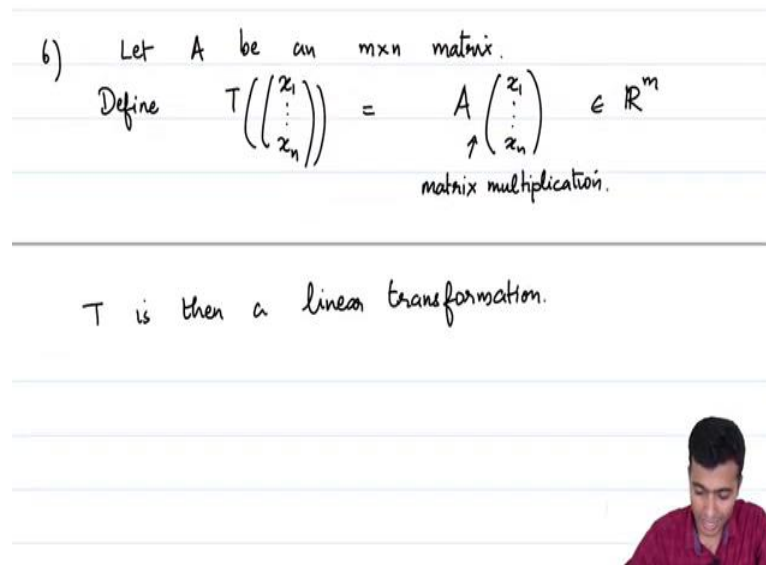 6) Let A be an m×n matrix.
Define T((x₁ ⋮ xₙ)) = A (x₁ ⋮ xₙ) ∈ ℝᵐ
↑
matrix multiplication.
T is then a linear transformation.